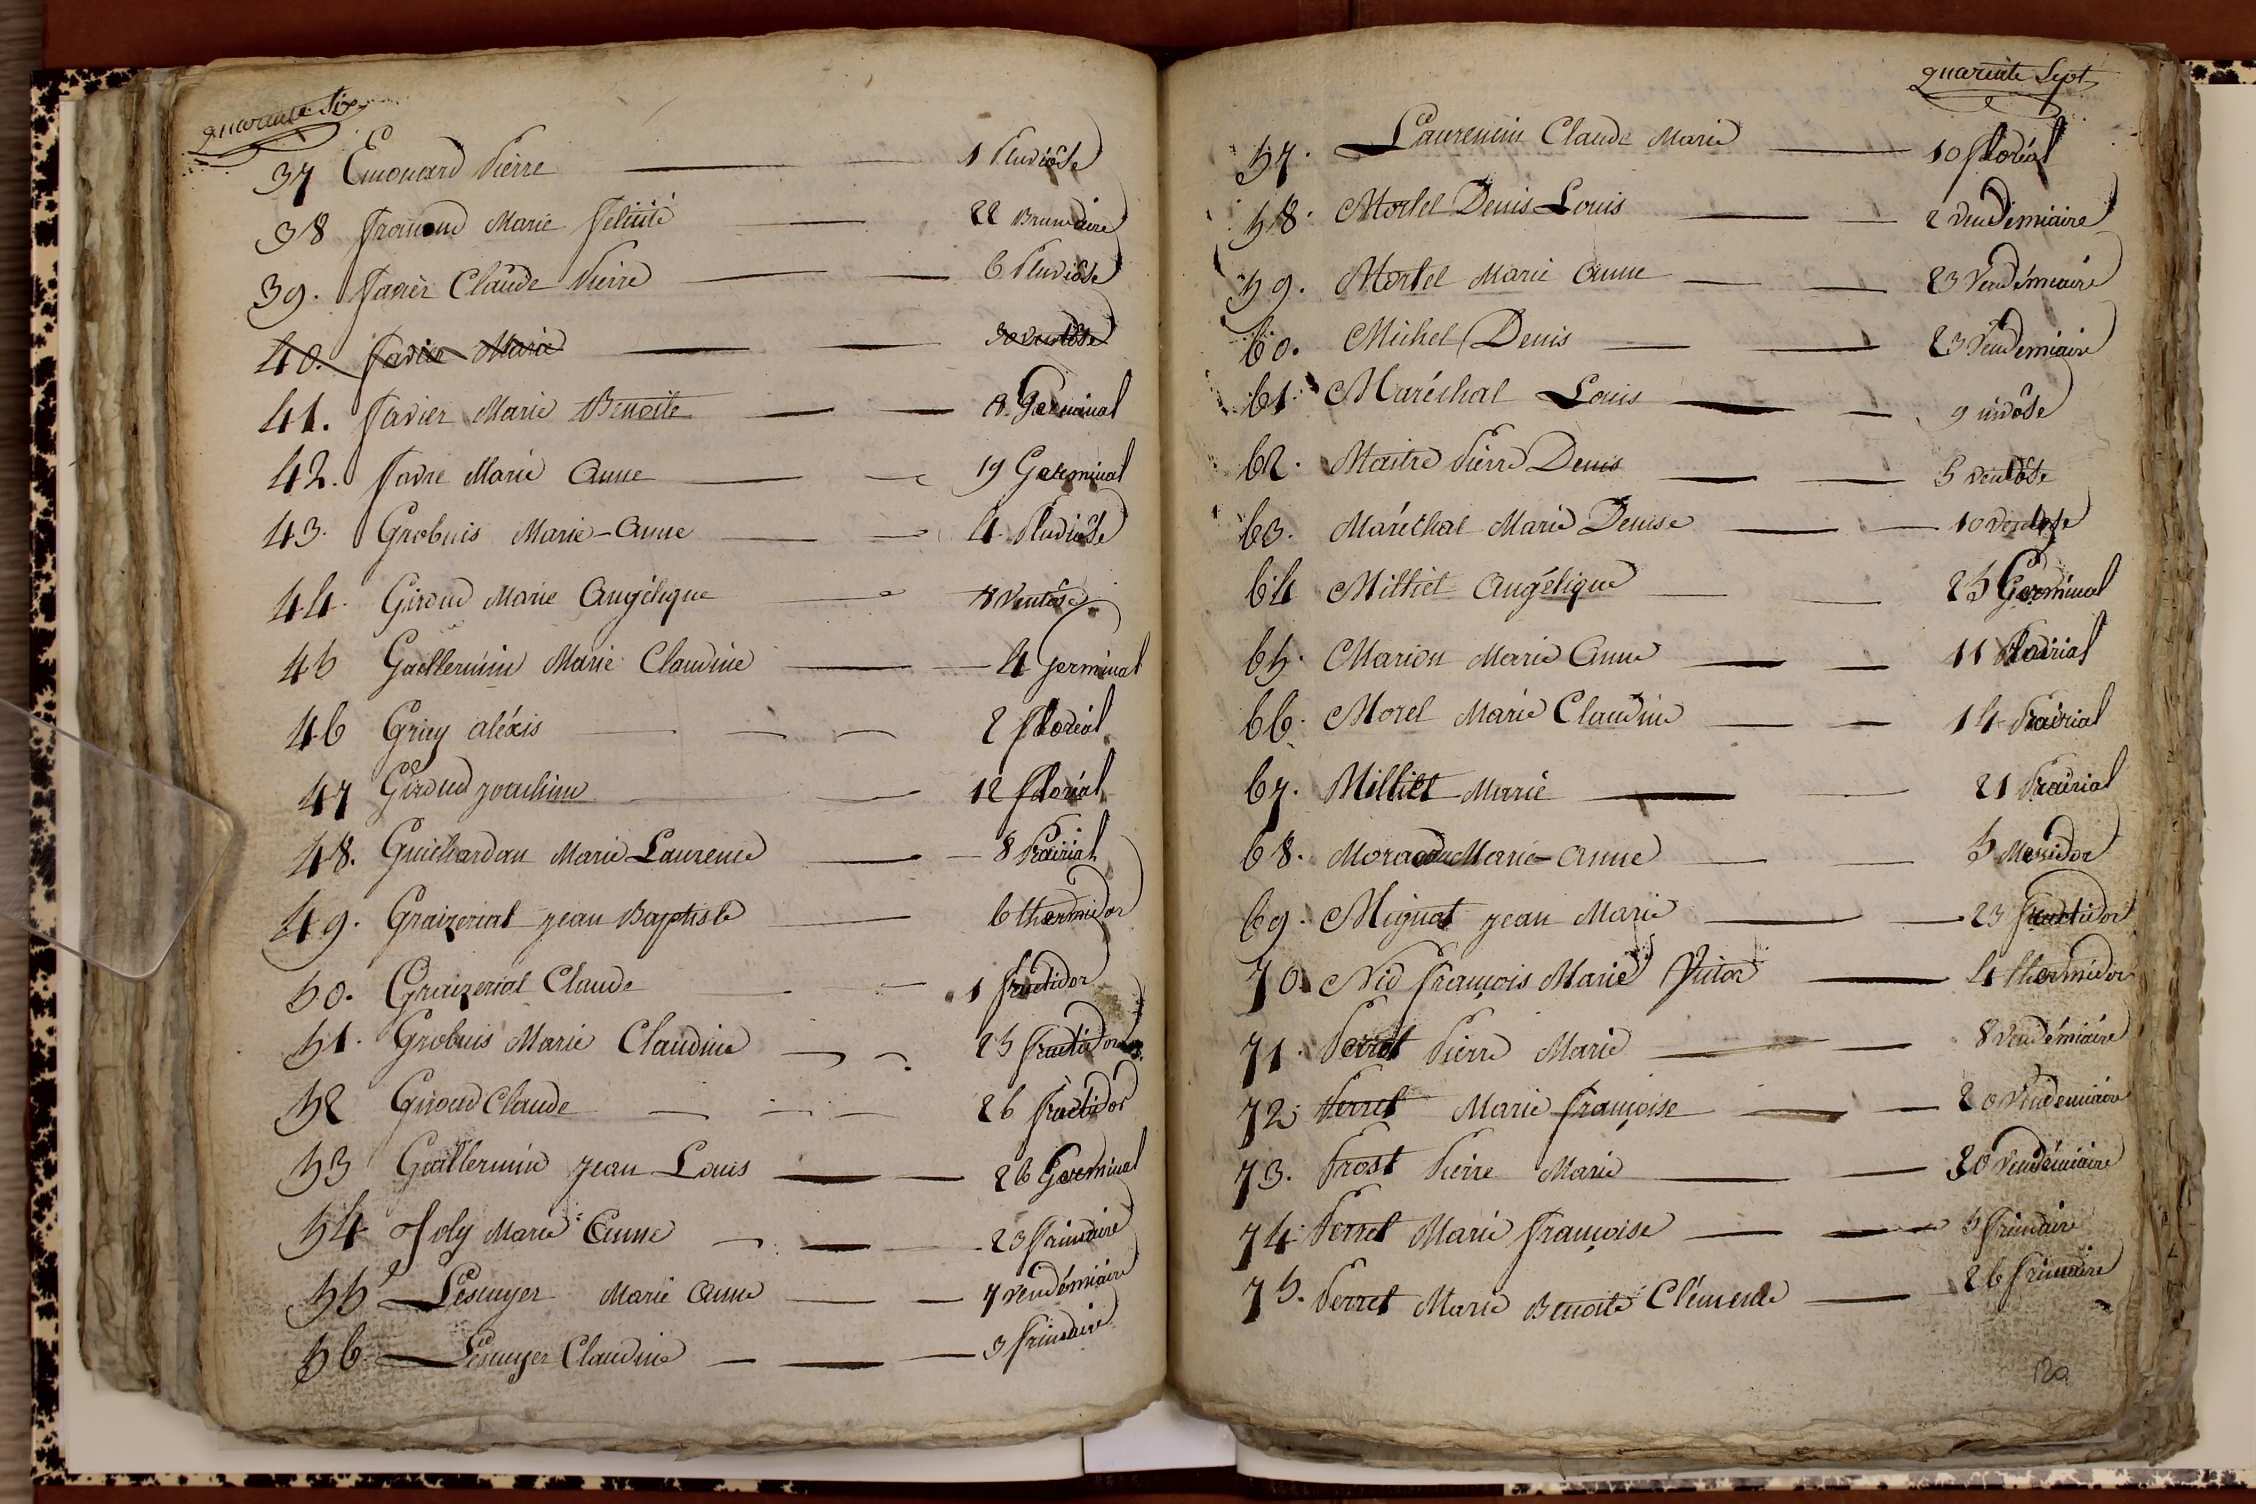 quarante Six
37 Emonard Pierre 1 Pluviôse
38 françoud Marie felicité 22 Brumaire
39. favier Claude Pierre 6 Pluviôse
40. favier Marie 30 ventôse
41. favier Marie Benoite 8 Germinal
42. favre Marie Anne 19 Germinal
43. Grobuis Marie-Anne 4 Pluviôse
44. Giroud Marie Angélique 8 Ventôse
45 Guillermin Marie Claudine 4 Germinal
46 Griey aléxis 2 floréal
47 Giroud joachim 12 floréal
48. Guichardan Marie Laurence 8 Prairial
49. Graizerial jean Baptiste 6 thermidor
50. Graizerial Claude 1 fructidor
51. Grobuis Marie Claudine 25 fructidor
52 Giroud Claude 26 fructidor
53 Guillermin jean Louis 26 Germinal
54 Joly Marie Anne 23 frimaire
55 Lescuyer Marie Anne 7 vendémiaire
56 Lescuyer Claudine 3 frimaire
quarante Sept
57. Laurencin Claude Marie 10 floréal
58. Mortel Denis Louis 2 vendémiaire
59. Mortel Marie Anne 23 Vendémiaire
60. Michel Denis 23 Vendemiaire
61. Maréchal Louis 9 nivôse
62. Maitre Pierre Denis 5 ventôse
63. Maréchal Marie Denise 10 ventose
64 Milliet Angélique 25 Germinal
65. Marion Marie Anne 11 Prairial
66. Morel Marie Claudine 14 Prairial
67. Milliet Marie 21 Prairial
68. Marie-Anne 5 Messidor
69. Mignot jean Marie 23 fructidor
70 Nid françois Marie Victor 4 thermidor
71. Perret Pierre Marie 8 vendémiaire
72. Perret Marie françoise 20 Vendemiaire
73. Prost Pierre Marie 30 Vendémiaire
74. Perret Marie françoise 5 frimaire
75. Perret Marie Benoite Clémence 26 frimaire